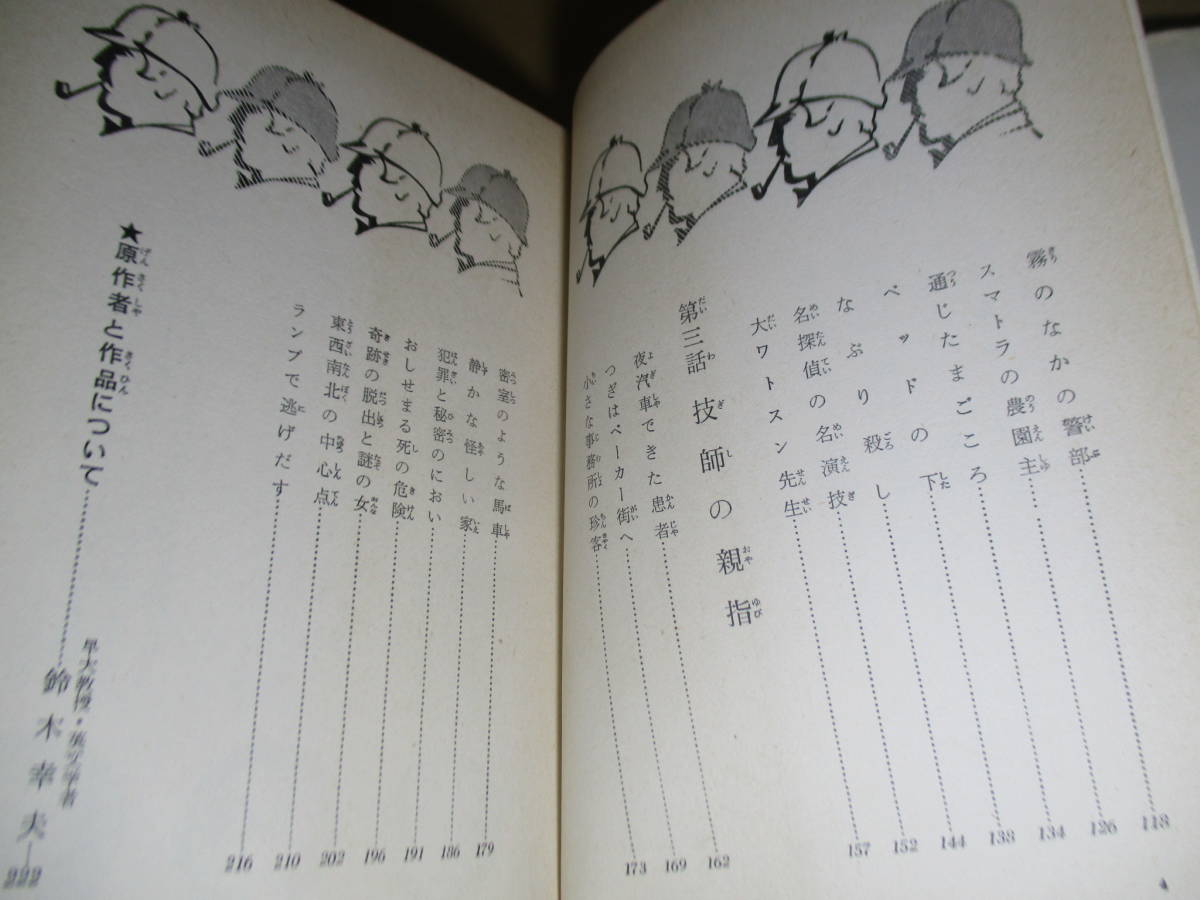 霧のなかの警部……118
スマトラの農園主……126
通じたまごころ……134
ベッドの下……138
なぶり殺し……144
名探偵の名演技……152
大ワトスン先生……157
第三話 技師の親指
夜汽車できた患者……162
つぎはベーカー街へ……169
小さな事務所の珍客……173
4
密室のような馬車……179
静かな怪しい家……186
犯罪と秘密のにおい……191
おしせまる死の危険……196
奇跡の脱出と謎の女……202
東西南北の中心点……210
ランプで逃げだす……216
★原作者と作品について……早大教授・英文学者 鈴木幸夫―222